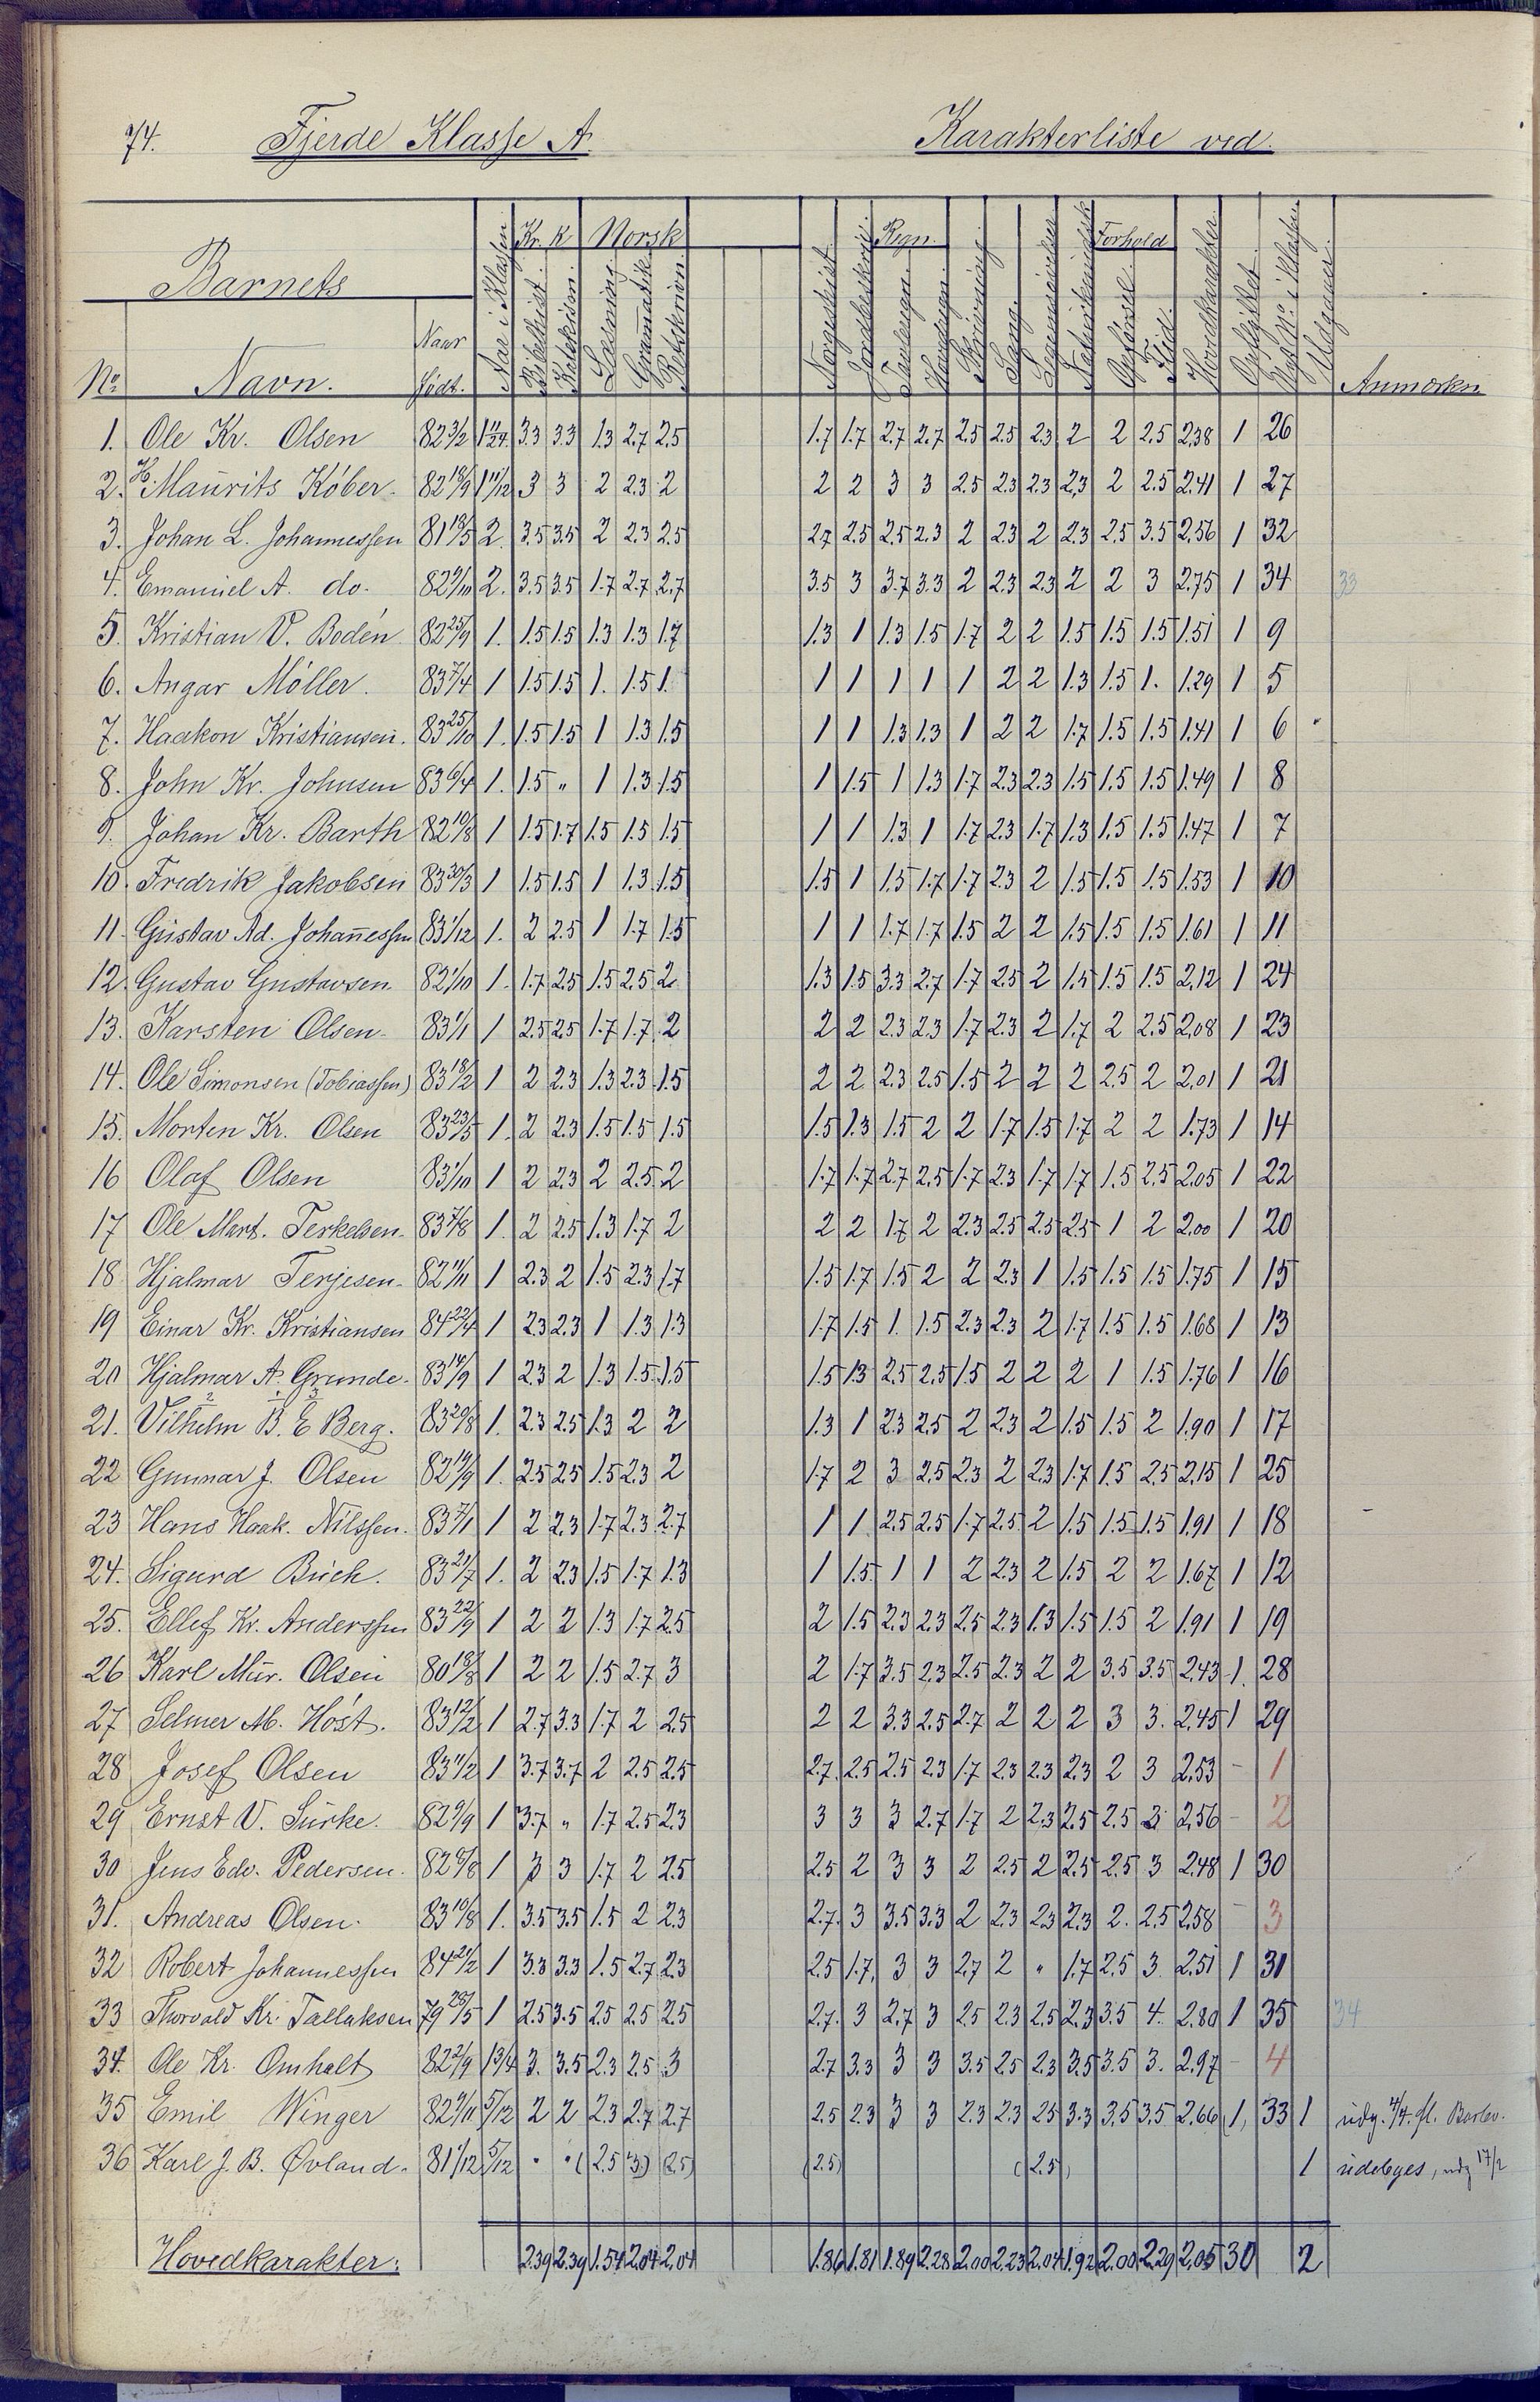 74. Fjerde Klasse A. Karakterliste ved.
Kr. k Norsk Regn. Forhold
Barnets
No. Navn. Naar født. Aar i Klassen Bibelhist. Katekism. Læsning Grammatik Retskrivn. Norgeshist. Jordbeskriv. Tavleregn. Hovedregn. Skrivning Sang. Opførsel Flid. Hovedkarakter Opflyttet Udgaaet. Anmærkn
1. Ole Kr. Olsen 82 3/2 1 11/24 3.3 3.3 1.3 2.7 2.5 1.7 1.7 2.7 2.7 2.5 2.5 2.3 2 2 2.5 2.38 1 26
2. H. Maurits Köber. 82 18/9 1 11/12 3 3 2 2.3 2 2 2 3 3 2.5 2.3 2.3 2.3 2 2.5 2.41 1 27
3. Johan L. Johannessen 81 18/5 2. 3.5 3.5 2 2.3 2.5 2.7 2.5 2.5 2.3 2 2.3 2 2.3 2.5 3.5 2.56 1 32
4. Emanuel A. do. 82 9/10 2. 3.5 3.5 1.7 2.7 2.7 3.5 3 3.7 3.3 2 2.3 2.3 2 2 3 2.75 1 34 33
5. Kristian V. Bodén 82 25/9 1. 1.5 1.5 1.3 1.3 1.7 1.3 1 1.3 1.5 1.7 2 2 1.5 1.5 1.5 1.51 1 9
6. Angar Möller. 83 7/4 1 1.5 1.5 1. 1.5 1. 1 1 1 1 1 2 2 1.3 1.5 1. 1.29 1 5
7. Haakon Kristiansen. 83 25/10 1. 1.5 1.5 1 1.3 1.5 1 1 1.3 1.3 1 2 2 1.7 1.5 1.5 1.41 1 6
8. John Kr. Johnsen 83 6/4 1. 1.5 " 1 1.3 1.5 1 1.5 1 1.3 1.7 2.3 2.3 1.5 1.5 1.5 1.49 1 8
9. Johan Kr. Barth 82 10/8 1 1.5 1.7 1.5 1.5 1.5 1 1 1.3 1 1.7 2.3 1.7 1.3 1.5 1.5 1.47 1 7
10. Fredrik Jakobsen 83 30/3 1 1.5 1.5 1 1.3 1.5 1.5 1 1.5 1.7 1.7 2.3 2 1.5 1.5 1.5 1.53 1 10
11. Gustav Ad. Johannessen 83 1/12 1. 2 2.5 1 1.7 1.5 1 1 1.7 1.7 1.5 2 2 1.5 1.5 1.5 1.61 1 11
12. Gustav Gustavsen 82 1/10 1. 1.7 2.5 1.5 2.5 2 1.3 1.5 3.3 2.7 1.7 2.5 2 1.5 1.5 1.5 2.12 1 24
13. Karsten Olsen. 83 1/1 1 2.5 2.5 1.7 1.7 2 2 2 2.3 2.3 1.7 2.3 2 1.7 2 2.5 2.08 1 23
14. Ole Simonsen (Tobiassen) 83 18/2 1 2 2.3 1.3 2.3 1.5 2 2 2.3 2.5 1.5 2 2 2 2.5 2 2.01 1 21
15. Morten Kr. Olsen 83 23/5 1. 2 2.3 1.5 1.5 1.5 1.5 1.3 1.5 2 2 1.7 1.5 1.7 2 2 1.73 1 14
16 Olaf Olsen 83 1/10 1 2 2.3 2 2.5 2 1.7 1.7 2.7 2.5 1.7 2.3 1.7 1.7 1.5 2.5 2.05 1 22
17 Ole Mart. Terkelsen. 83 7/8 1. 2 2.5 1.3 1.7 2 2 2 1.7 2 2.3 2.5 2.5 2.5 1 2 2.00 1 20
18. Hjalmar Terjesen. 82 11/11 1 2.3 2 1.5 2.3 1.7 1.5 1.7 1.5 2 2 2.3 1 1.5 1.5 1.5 1.75 1 15
19 Einar Kr. Kristiansen 84 22/4 1 2.3 2.3 1 1.3 1.3 1.7 1.5 1. 1.5 2.3 2.3 2 1.7 1.5 1.5 1.68 1 13
20 Hjalmar A. Grunde. 83 14/9 1 2.3 2 1.3 1.5 1.5 1.5 1.3 2.5 2.5 1.5 2 2 2 1 1.5 1.76 1 16
21. Vilhelm B. E Berg. 83 20/8 1. 2.3 2.5 1.3 2 2 1.3 1 2.3 2.5 2 2.3 2 1.5 1.5 2 1.90 1 17
22 Gunnar J. Olsen 82 19/9 1. 2.5 2.5 1.5 2.3 2 1.7 2 3 2.5 2.3 2 2.3 1.7 1.5 2.5 2.15 1 25
23 Hans Haak. Nilssen. 83 7/1 1 2 2.3 1.7 2.3 2.7 1 1 2.5 2.5 1.7 2.5 2 1.5 1.5 1.5 1.91 1 18
24. Sigurd Buch. 83 21/7 1. 2 2.3 1.5 1.7 1.3 1 1.5 1 1 2 2.3 2 1.5 2 2 1.67 1 12
25. Ellef Kr. Anderssen 83 22/9 1 2 2 1.3 1.7 2.5 2 1.5 2.3 2.3 2.5 2.3 1.3 1.5 1.5 2 1.91 1 19
26 Karl Mur. Olsen 80 18/8 1 2 2 1.5 2.7 3 2 1.7 3.5 2.3 2.5 2.3 2 2 3.5 3.5 2.43 1. 28
27 Selmer M. Höst. 83 12/2 1 2.7 3.3 1.7 2 2.5 2 2 3.3 2.5 2.7 2 2 2 3 3. 2.45 1 29
28 Josef Olsen 83 11/2 1 3.7 3.7 2 2.5 2.5 2.7. 2.5 2.5 2.3 1.7 2.3 2.3 2.3 2 3 2.53 - 1
29 Ernst V. Surke. 82 9/9 1 3.7 " 1.7 2.5 2.3 3 3 3 2.7 1.7 2 2.3 2.5 2.5 3 2.56 - 2
30 Jens Edv. Pedersen. 82 6/8 1 3 3 1.7 2 2.5 2.5 2 3 3 2 2.5 2 2.5 2.5 3 2.48 1 30
31. Andreas Olsen. 83 10/8 1. 3.5 3.5 1.5 2 2.3 2.7. 3 3.5 3.3 2 2.3 2.3 2.3 2. 2.5 2.58 - 3
32 Robert Johannessen 84 21/2 1 3.3 3.3 1.5 2.7 2.3 2.5 1.7. 3 3 2.7 2 " 1.7 2.5 3 2.51 1 31
33 Thorvald Kr. Tallaksen 79 28/5 1 2.5 3.5 2.5 2.5 2.5 2.7. 3 2.7 3 2.5 2.3 2.5 2.3 3.5 4. 2.80 1 35 34
34. Ole Kr. Omholt 82 2/9 1 3/4 3. 3.5 2.3 2.5 3 2.7 3.3 3 3 3.5 2.5 2.3 3.5 3.5 3. 2.97 - 4
35 Emil Winger 82 9/11 5/12 2 2 2.3 2.7 2.7 2.5 2.3 3 3 2.3 2.3 2.5 3.3 3.5 3.5 2.66 1, 33 1 udg. 4/4. fl.
36 Karl J. B. Øvland. 81 1/12 5/12 " " (2.5 3) (2.5) (2.5) (2.5) 1 udeloges, udg 17/2
Hovedkarakter: 2.39 2.39 1.54 2.04 2.04 1.86 1.81 1.89 2.28 2.00 2.23 2.04 1.92 2.00 2.29 2.05 30 2